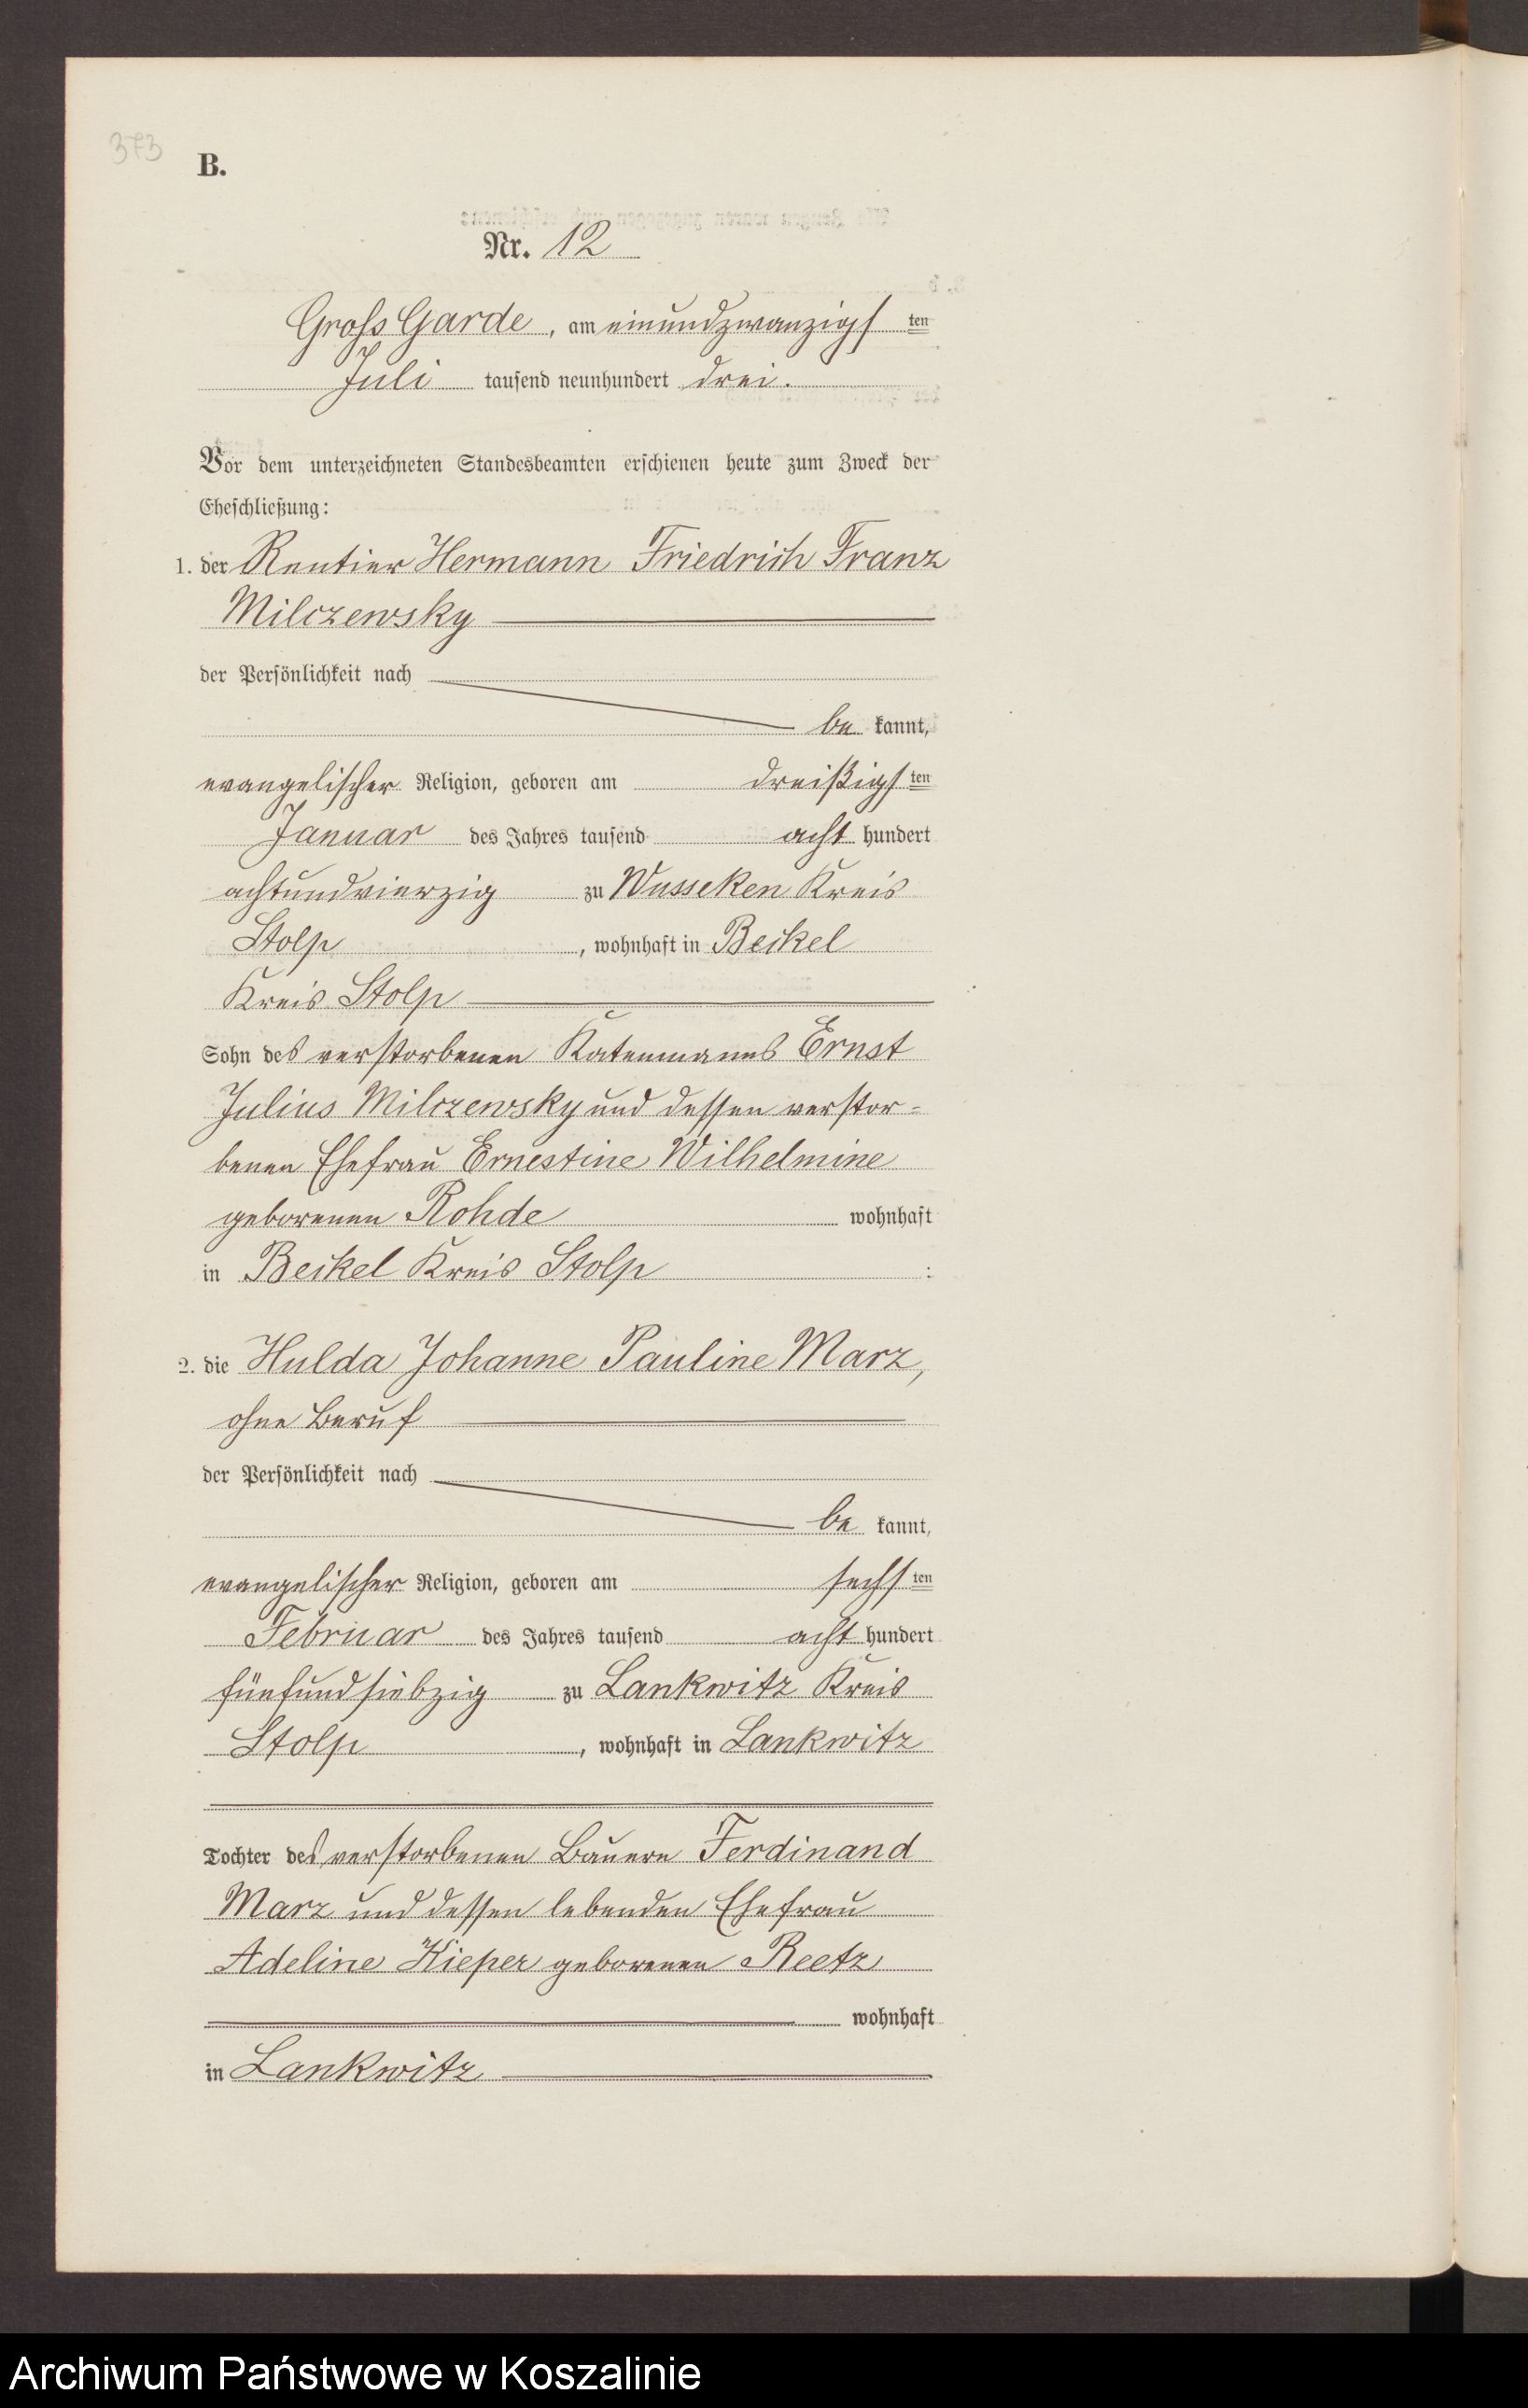 373
B.
Nr. 12
Gross Garde, am einundzwanzigsten
Juli tausend neunhundert drei.
Vor dem unterzeichneten Standesbeamten erschienen heute zum Zweck der
Eheschließung:
1. der Rentier Hermann Friedrich Franz
Milczewsky
der Persönlichkeit nach
be kannt,
evangelischer Religion, geboren am dreißigsten
Januar des Jahres tausend acht hundert
achtundvierzig zu Wusseken Kreis
Stolp, wohnhaft in Beckel
Kreis Stolp
Sohn des verstorbenen Katenmanns Ernst
Julius Milczewsky und dessen verstor-
benen Ehefrau Ernestine Wilhelmine
geborenen Rohde wohnhaft
in Beckel Kreis Stolp :
2. die Hulda Johanne Pauline Marz,
ohne Beruf
der Persönlichkeit nach
be kannt,
evangelischer Religion, geboren am sechsten
Februar des Jahres tausend acht hundert
fünfundsiebzig zu Lankwitz Kreis
Stolp, wohnhaft in Lankwitz
Tochter des verstorbenen Bauern Ferdinand
Marz und dessen lebenden Ehefrau
Adeline Kieper geborenen Reetz
wohnhaft
in Lankwitz
Archiwum Państwowe w Koszalinie